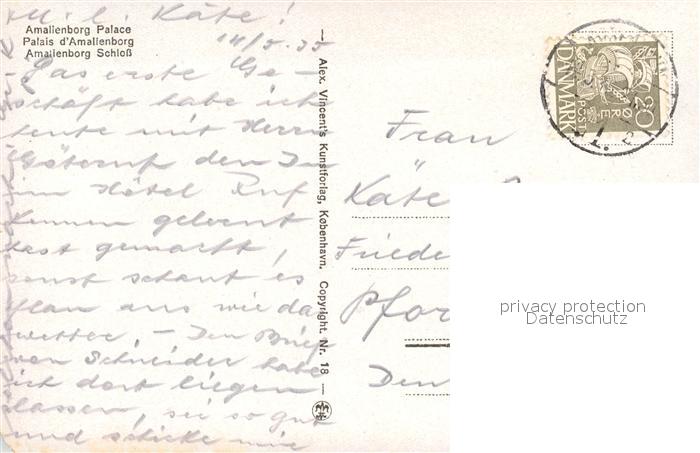 M. l. Käte!
14/5.35
Amalienborg Palace
Palais d'Amalienborg
Amalienborg Schloß
- Das erste Ge-
schäft habe ich
heute mit Herrn
den
im Hotel
kennen gelernt
hast gemacht,
sonst schaut es
flau aus wie das
wetter, - Den Brief
von Schneider habe
ich dort liegen
lassen, sei so gut
und schicke mir
— Alex. Vincent's Kunstforlag, København. Copyright. Nr. 18 —
DANMARK
20
POST
ØRE
Frau
Käte
Friede
Pfor
privacy protection
Datenschutz